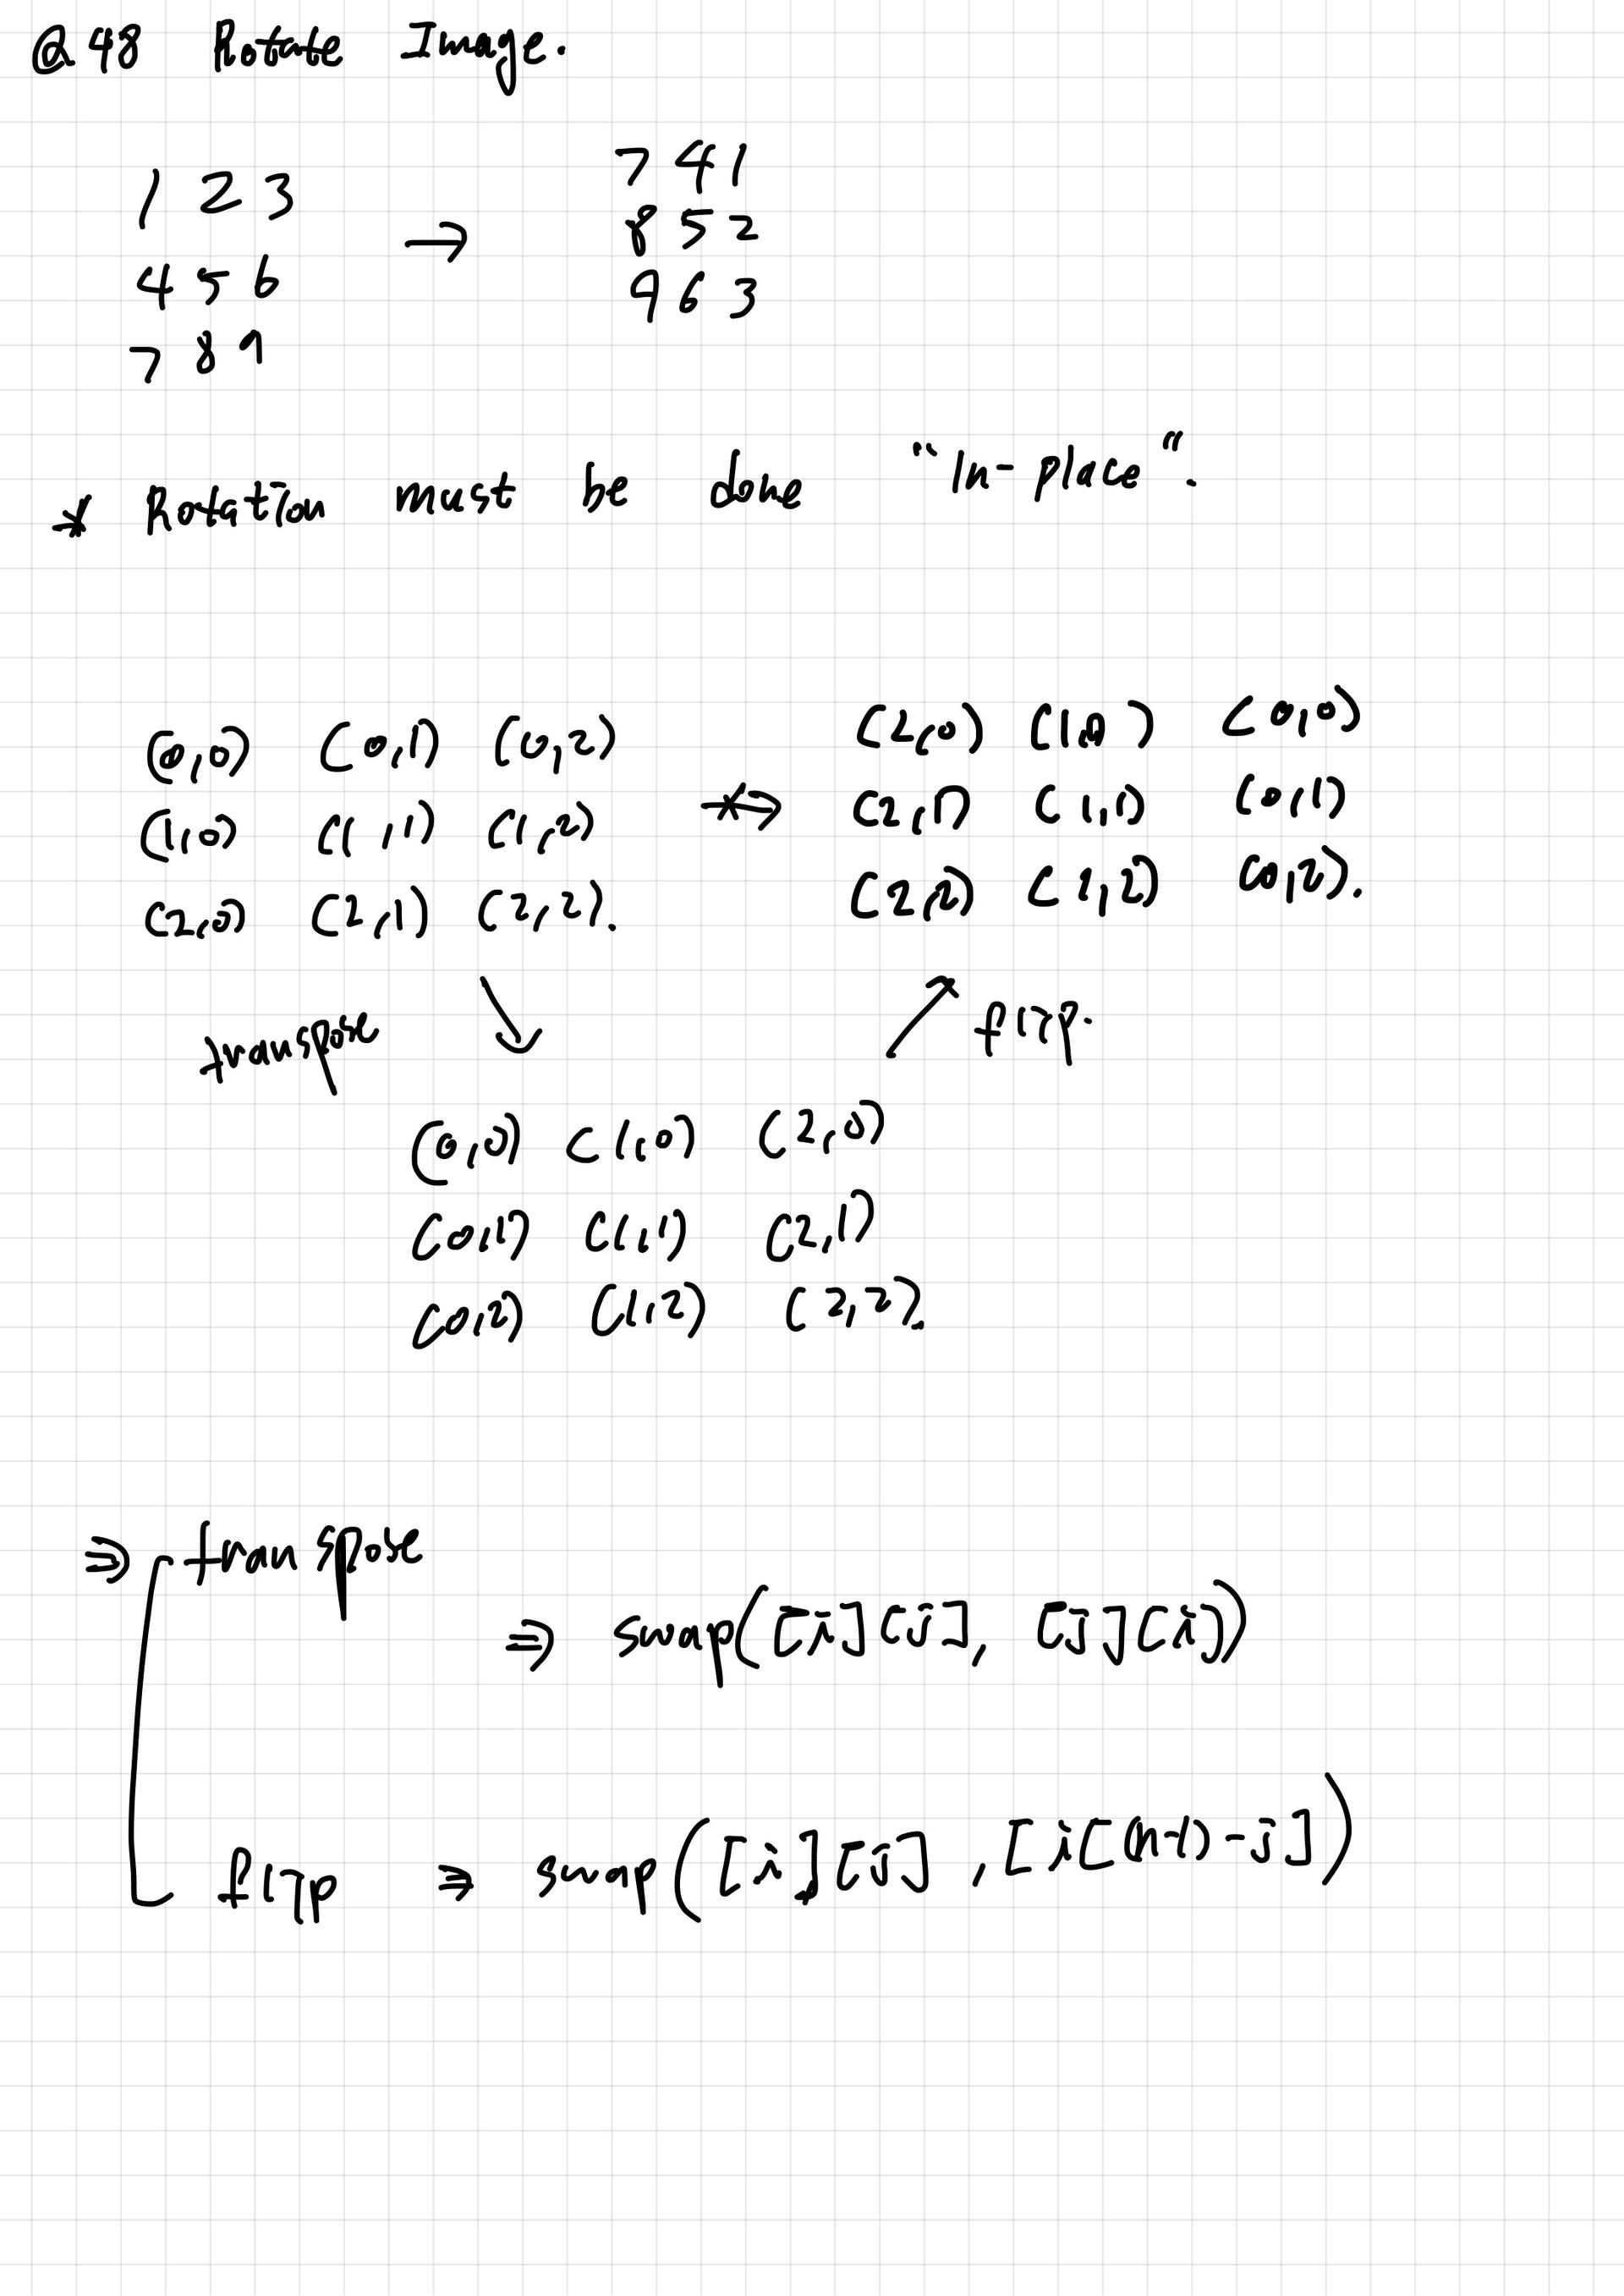 Q48 Rotate Image.
1 2 3 → 7 4 1
4 5 6 8 5 2
7 8 9 9 6 3
* Rotation must be done "In-place".
(0,0) (0,1) (0,2) → (2,0) (1,0) (0,0)
(1,0) (1,1) (1,2) (2,1) (1,1) (0,1)
(2,0) (2,1) (2,2). (2,2) (1,2) (0,2).
transpose ↘ ↗ flip.
(0,0) (1,0) (2,0)
(0,1) (1,1) (2,1)
(0,2) (1,2) (2,2).
⇒ transpose
⇒ swap([i][j], [j][i])
flip ⇒ swap([i][j], [i[(n-1)-j])